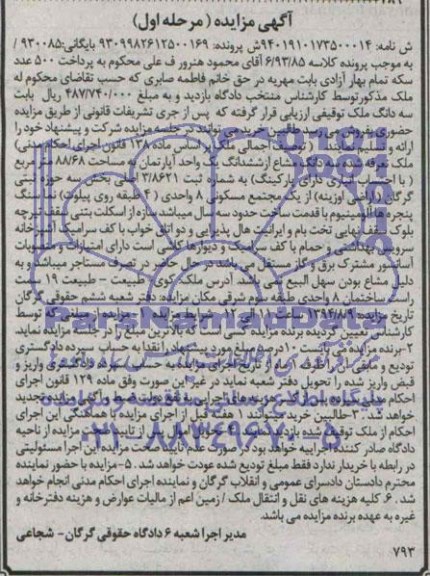 آگهی مزایده (مرحله اول)
ش نامه: ۹۴۰۱۹۱۰۱۷۳۵۰۰۰۱۴ ش پرونده: ۹۳۰۹۹۸۲۶۱۲۵۰۰۱۶۹ بایگانی: ۹۳۰۰۸۵ /
به موجب پرونده کلاسه ۶/۹۳/۸۵ آقای محمود هنرور ف علی محکوم به پرداخت ۵۰۰ عدد
سکه تمام بهار آزادی بابت مهریه در حق خانم فاطمه صابری که حسب تقاضای محکوم له
ملک مذکور توسط کارشناس منتخب دادگاه بازدید و به مبلغ ۴۸۷/۷۴۰/۰۰۰ ریال بابت
سه دانگ ملک توقیفی ارزیابی قرار گرفته که پس از جری تشریفات قانونی از طریق مزایده
حضوری بفروش می رسد طالبین خرید می توانند در جلسه مزایده شرکت و پیشنهاد خود را
ارائه و تسلیم نمایند. (توضیحات اجمالی ملک بر اساس ماده ۱۳۸ قانون اجرای احکام مدنی)
ملک تعرفه شده سه دانگ مشاع از ششدانگ یک واحد آپارتمان به مساحت ۸۸/۶۸ متر مربع
(با احتساب انباری دارای پارکینگ) به شماره ثبت ۳/۸۶۲۱ اصلی بخش سه حوزه ثبتی
گرگان (اراضی اوزینه) از یک مجتمع مسکونی ۸ واحدی (۴ طبقه روی پیلوت) نما سنگ
پنجره ها آلومینیوم با قدمت ساخت حدود سال میباشد سازه از اسکلت بتنی سقف تیرچه
بلوک سقف نهایی تخت بام و ایرانیت هال پذیرایی و دو اتاق خواب با کف سرامیک آشپزخانه
سرویس بهداشتی و حمام با کف سرامیک و دیوارها کاشی است دارای امتیازات و منصوبات
آسانسور مشترک برق و گاز مستقل می باشد در حال حاضر در تصرف مستاجر میباشد و به
دلیل مشاع بودن سهل البیع نمی باشد. آدرس ملک: کوی طبیعت - طبیعت ۱۹ سمت
راست ساختمان ۸ واحدی طبقه سوم شرقی مکان مزایده: دفتر شعبه ششم حقوقی گرگان
تاریخ مزایده ۱۳۹۴/۸/۹ ساعت ۱۱ الی ۱۲ شرایط مزایده: ۱- مزایده از مبلغی که توسط
کارشناس تعیین گردیده برنده مزایده کسی است که بالاترین مبلغ را در جلسه مزایده نماید.
۲- برنده مزایده می بایست ۱۰ درصد مبلغ مورد پیشنهاد را نقدا به حساب سپرده دادگستری
تودیع و مابقی را ظرف ماه از تاریخ اجرای مزایده به حساب سپرده دادگستری واریز و
قبض واریز شده را تحویل دفتر شعبه نماید در غیر این صورت وفق ماده ۱۲۹ قانون اجرای
احکام مدنی سپرده پس از کسر هزینه های اجرایی به نفع دولت ضبط و آگهی مزایده تجدید
خواهد شد. ۳- طالبین خرید میتوانند ۱ هفته قبل از اجرای مزایده با هماهنگی این اجرای
احکام از ملک توقیف شده بازدید نمایند. ۴- تحویل مال پس از تایید صحت مزایده از ناحیه
دادگاه صادر کننده اجراییه خواهد بود در صورت عدم تایید صحت مزایده این اجرا مسئولیتی
در رابطه با خریدار ندارد فقط مبلغ تودیع شده عودت خواهد شد. ۵- مزایده با حضور نماینده
محترم دادستان دادسرای عمومی و انقلاب گرگان و نماینده اجرای احکام مدنی انجام خواهد
شد. ۶- کلیه هزینه های نقل و انتقال ملک / زمین اعم از مالیات عوارض و هزینه دفترخانه و
غیره به عهده برنده مزایده می باشد.
مدیر اجرا شعبه ۶ دادگاه حقوقی گرگان - شجاعی
۷۹۳
ParsNamadData
۰۲۱-۸۸۳۴۹۶۷۰-۵